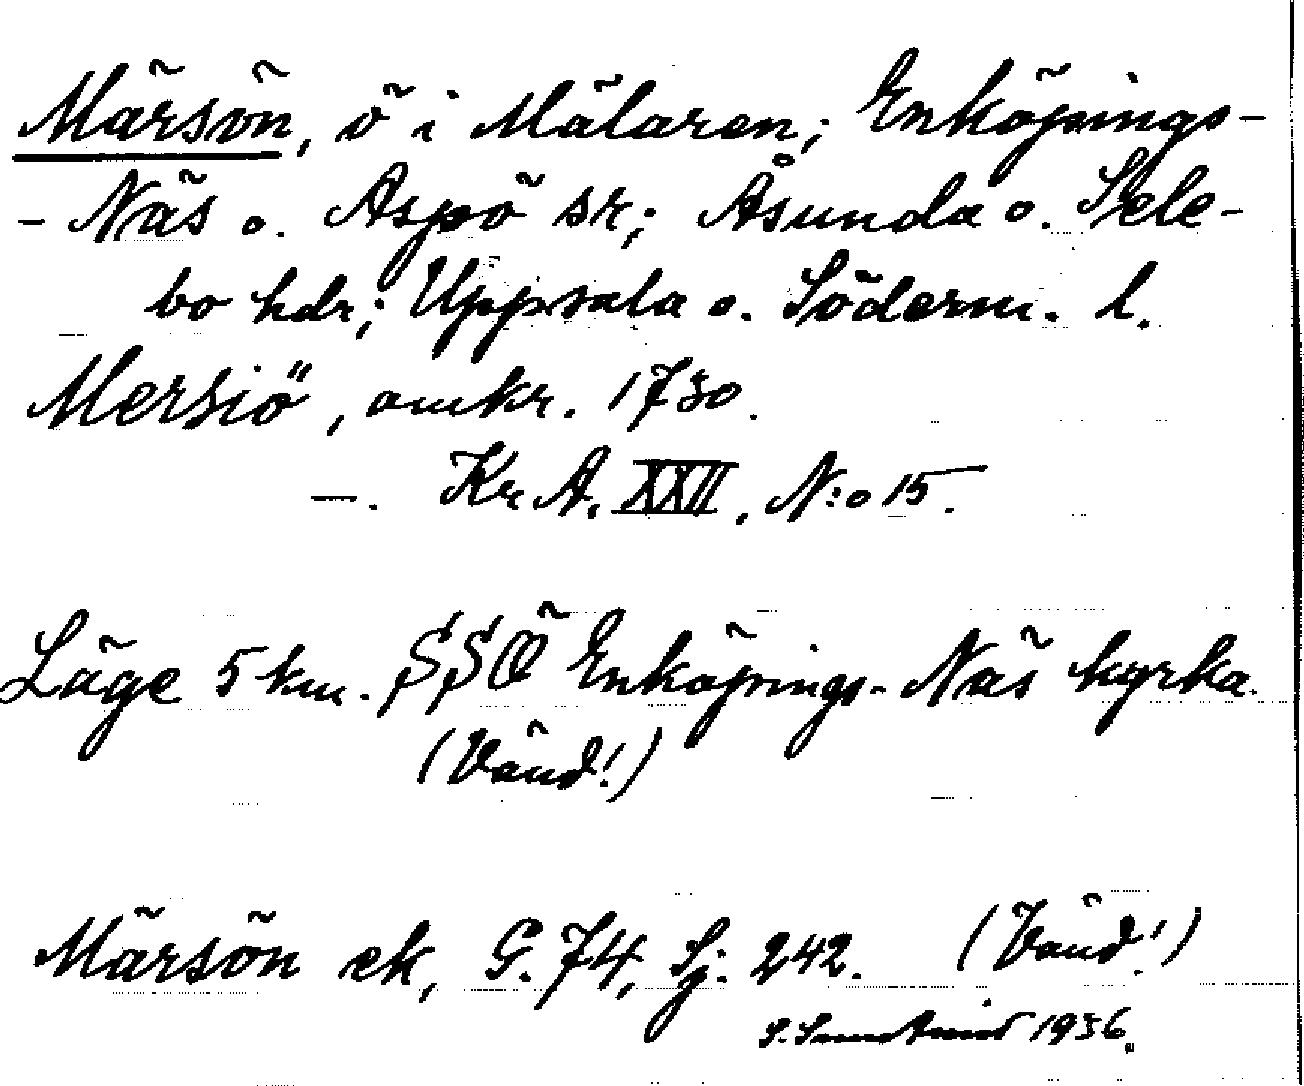 Märsön, ö i Mälaren; Enköpings-
- Näs o. Aspö sr; Åsunda o. Sele-
bo hdr; Uppsala o. Söderm. l.
Mersiö, omkr. 1730.
—. Kr A. XXII, N:o 15.
Läge 5 km. SSÖ Enköpings-Näs kyrka.
(Vänd!)
Märsön ek, G. 74, Sj. 242. (Vänd!)
1936.